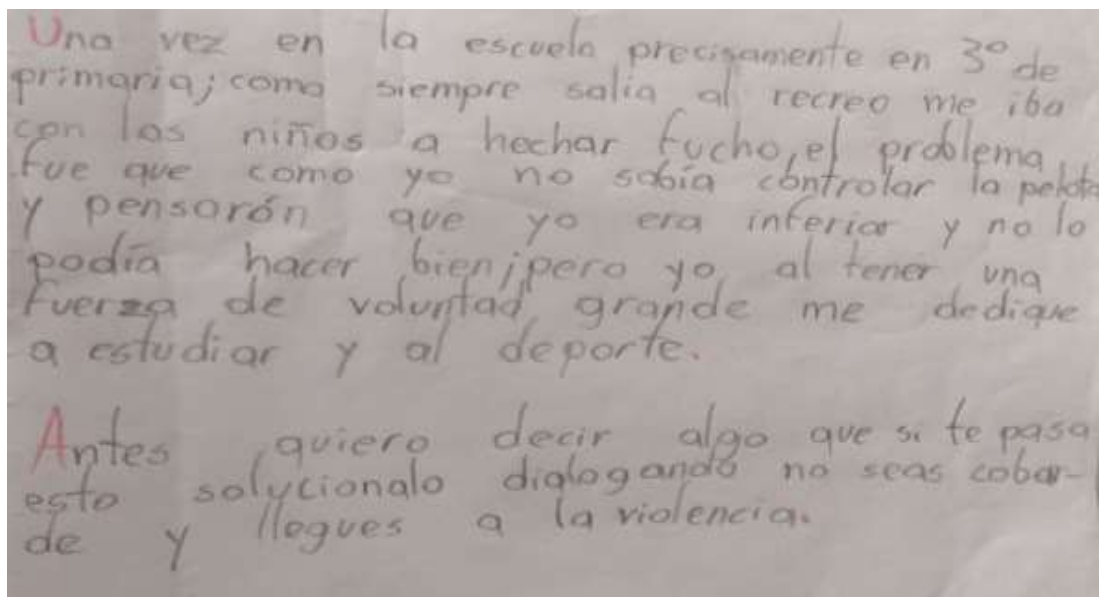 Una vez en la escuela precisamente en 3° de
primaria; como siempre salia al recreo me iba
con los niños a hechar fucho, el problema
fue que como yo no sabía controlar la pelota
y pensarón que yo era inferior y no lo
podía hacer bien; pero yo al tener una
fuerza de voluntad grande me dedique
a estudiar y al deporte.
Antes quiero decir algo que si te pasa
esto solucionalo dialogando no seas cobar-
de y llegues a la violencia.